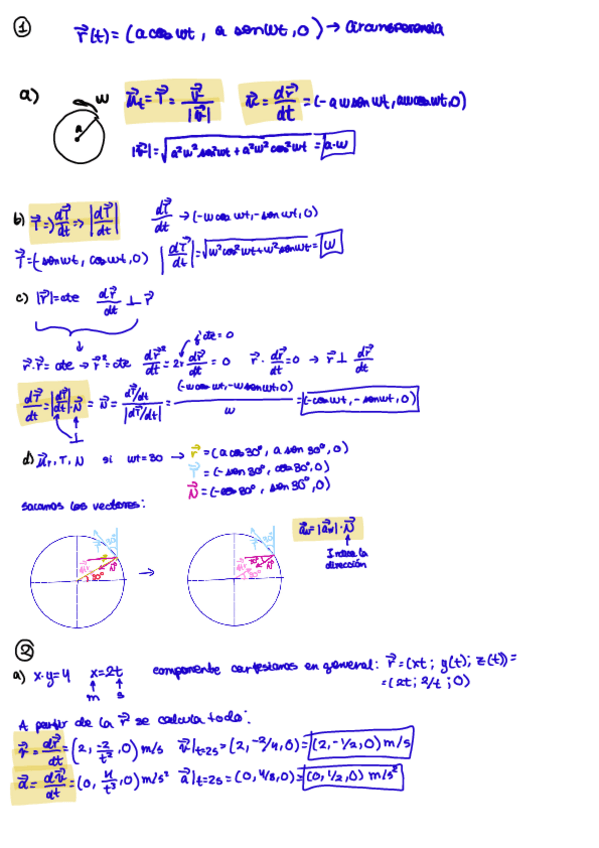 ① r⃗(t) = (a cos wt, a sen wt, 0) → circunferencia
a) a w u⃗t = T⃗ = v⃗/|v⃗| v⃗ = dr⃗/dt = (-aw sen wt, aw cos wt, 0)
|v⃗| = √(a²w² sen² wt + a²w² cos² wt) = a·w
b) T⃗ ⇒ dT⃗/dt ⇒ |dT⃗/dt| dT⃗/dt → (-w cos wt, -sen wt, 0)
T⃗ = (-sen wt, cos wt, 0) |dT⃗/dt| = √(w² cos² wt + w² sen wt) = w
c) |r⃗| = cte dr⃗/dt ⊥ r⃗
cte = 0
r⃗·r⃗ = cte → r⃗² = cte dr⃗²/dt = 2r dr⃗/dt = 0 r⃗·dr⃗/dt = 0 → r⃗ ⊥ dr⃗/dt
dT⃗/dt = |dT⃗/dt|·N⃗ = N⃗ = (dT⃗/dt)/|dT⃗/dt| = (-w cos wt, -w sen wt, 0)/w = (-cos wt, -sen wt, 0)
⊥
d) T, N si wt = 30 → r⃗ = (a cos 30°, a sen 30°, 0)
T⃗ = (-sen 30°, cos 30°, 0)
N⃗ = (-cos 30°, sen 30°, 0)
sacamos los vectores:
30° N⃗ → 30° N⃗ = |a⃗n|·N⃗
Indica la
dirección
②
a) x·y = 4 x = 2t componente cartesianas en general: r⃗ = (xt; y(t); z(t)) =
m s = (2t; 2/t; 0)
A partir de la r⃗ se calcula todo:
v⃗ = dr⃗/dt = (2, -2/t², 0) m/s v⃗|t=2s = (2, -2/4, 0) = (2, -1/2, 0) m/s
a⃗ = dv⃗/dt = (0, 4/t³, 0) m/s² a⃗|t=2s = (0, 4/8, 0) = (0, 1/2, 0) m/s²